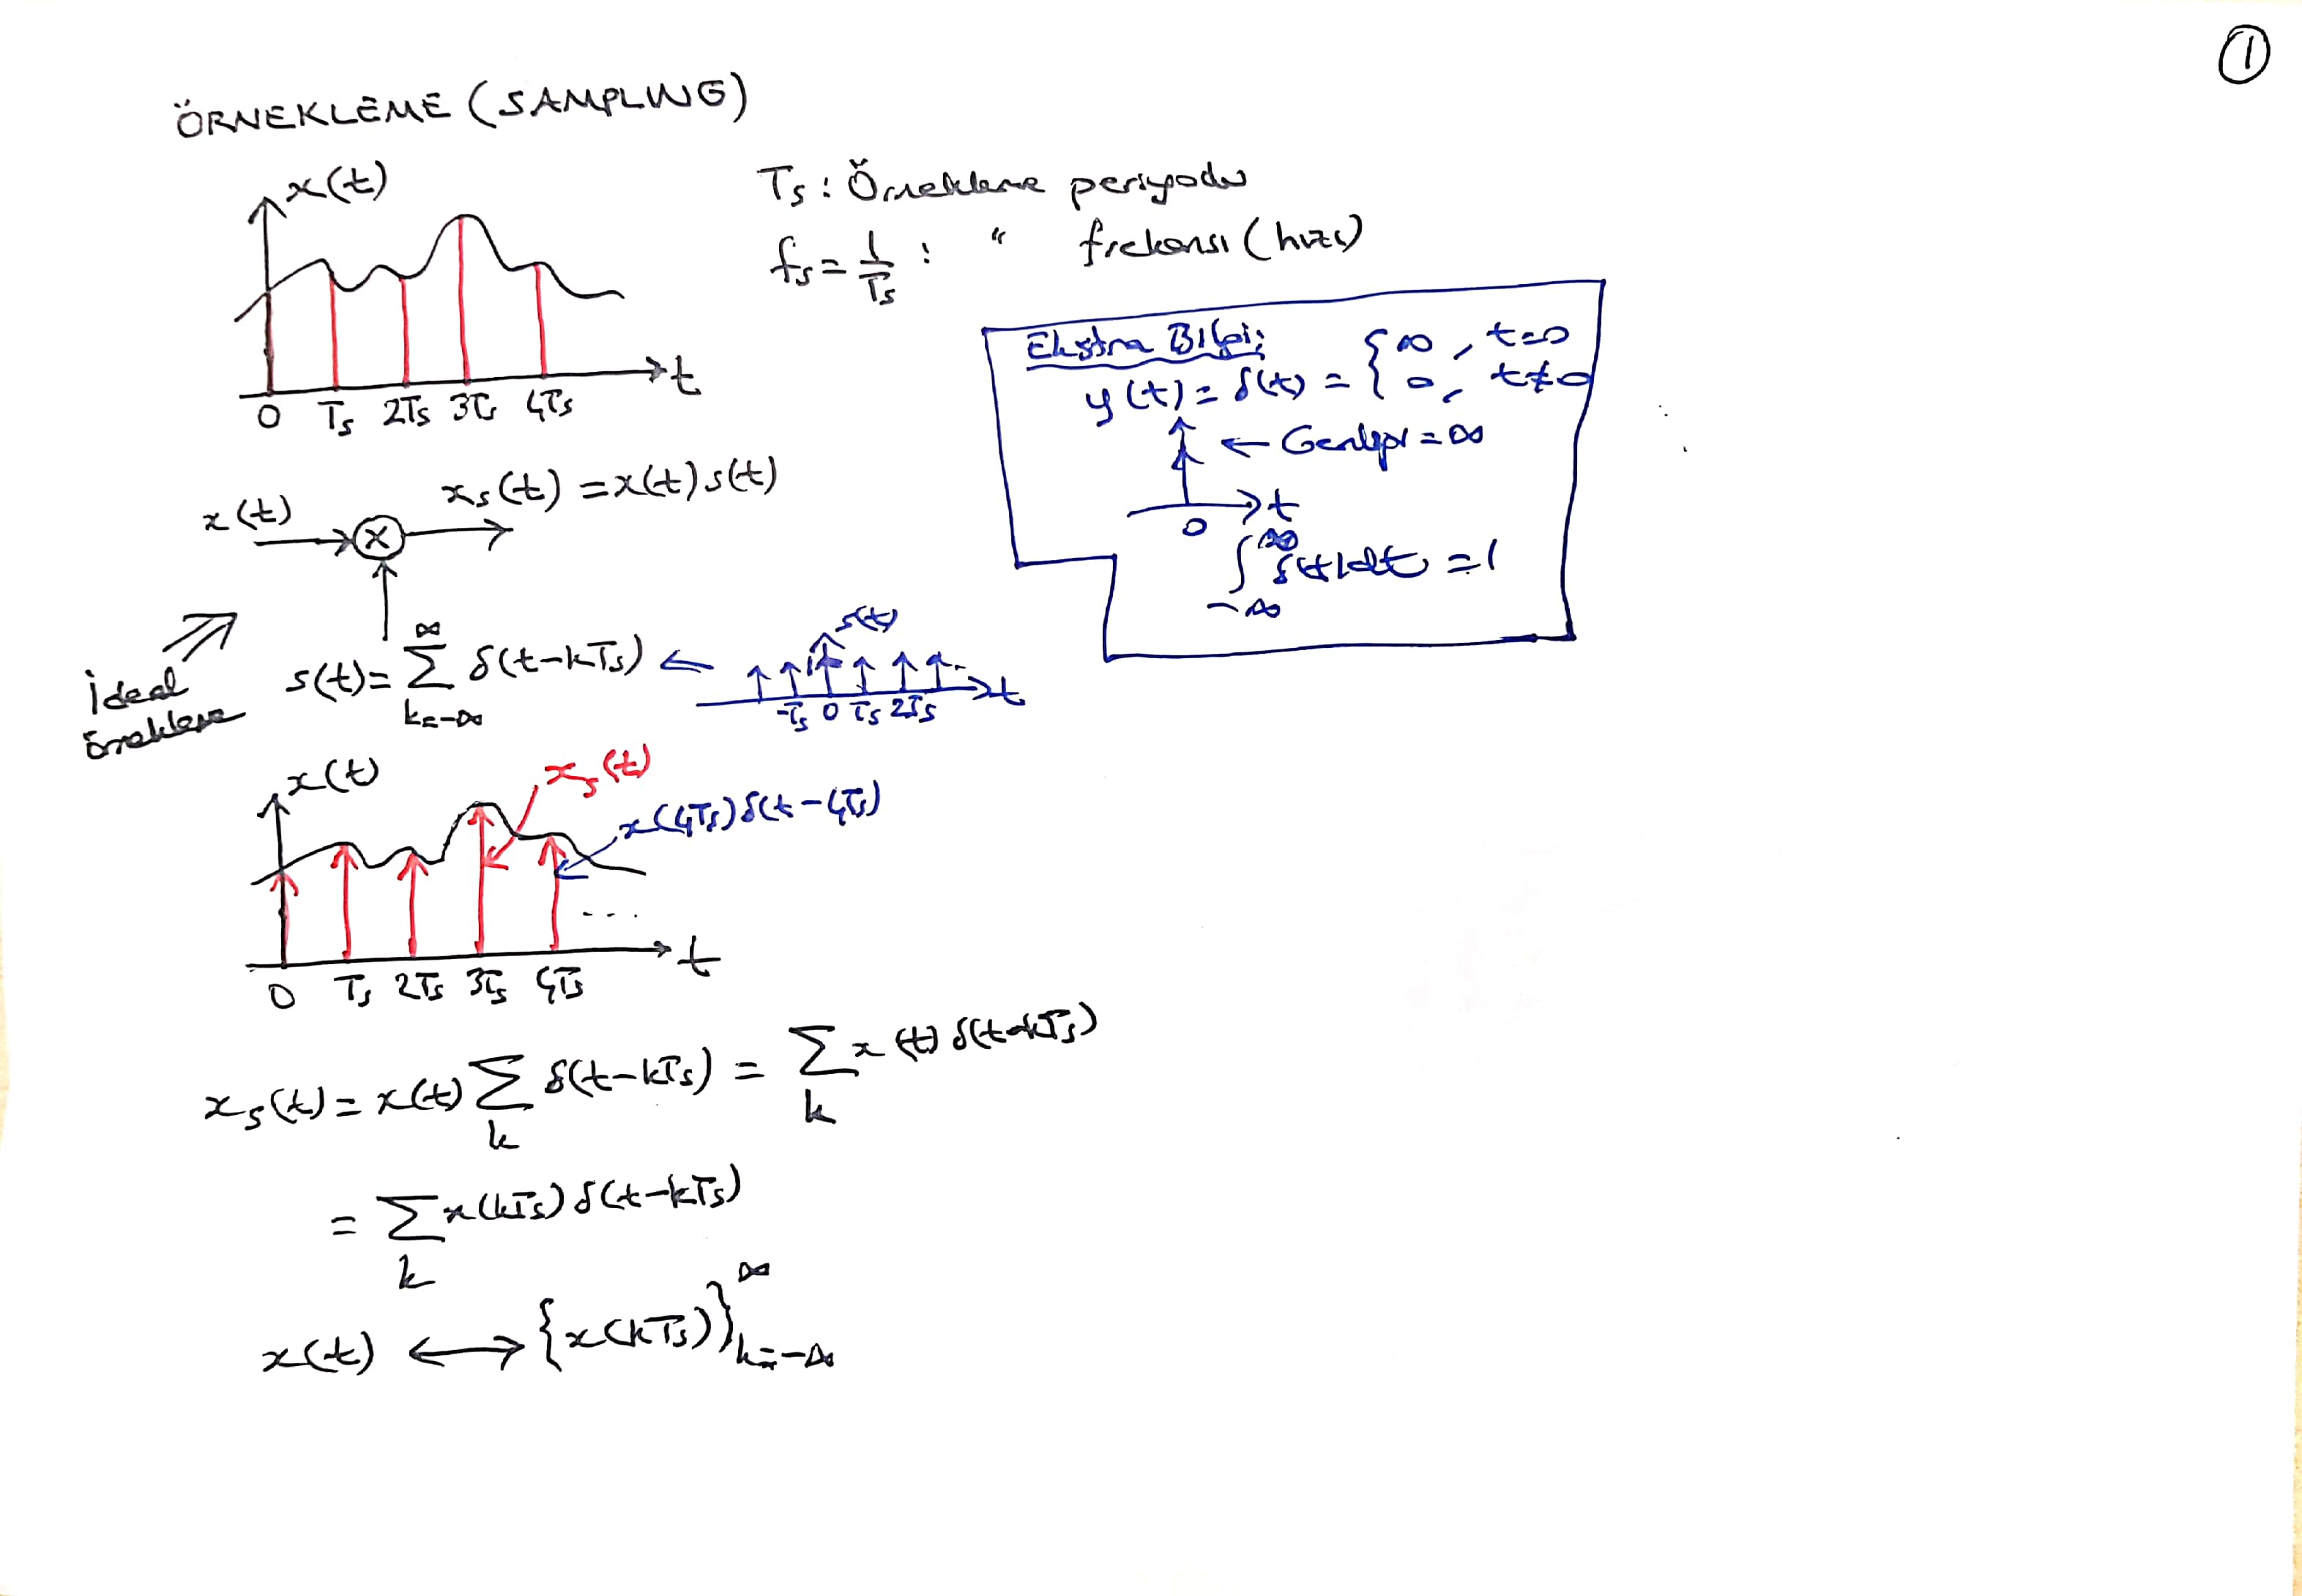 ①
ÖRNEKLEME (SAMPLING)
x(t)
t
0 Ts 2Ts 3Ts 4Ts
Ts : Örnekleme periyodu
fs = 1/Ts : " frekansı (hızı)
Ekstra Bilgi:
y(t) = δ(t) = { ∞ , t=0
0 , t≠0
← Genliği = ∞
t
0
∫_{-∞}^{∞} δ(t)dt = 1
x(t) × xs(t) = x(t) s(t)
İdeal
örnekleme
s(t) = ∑_{k=-∞}^{∞} δ(t-kTs) ←
s(t)
1
... t
-Ts 0 Ts 2Ts
x(t)
xs(t)
x(4Ts) δ(t-4Ts)
....
t
0 Ts 2Ts 3Ts 4Ts
xs(t) = x(t) ∑_k δ(t-kTs) = ∑_k x(t) δ(t-kTs)
= ∑_k x(kTs) δ(t-kTs)
x(t) ⟷ {x(kTs)}_{k=-∞}^{∞}